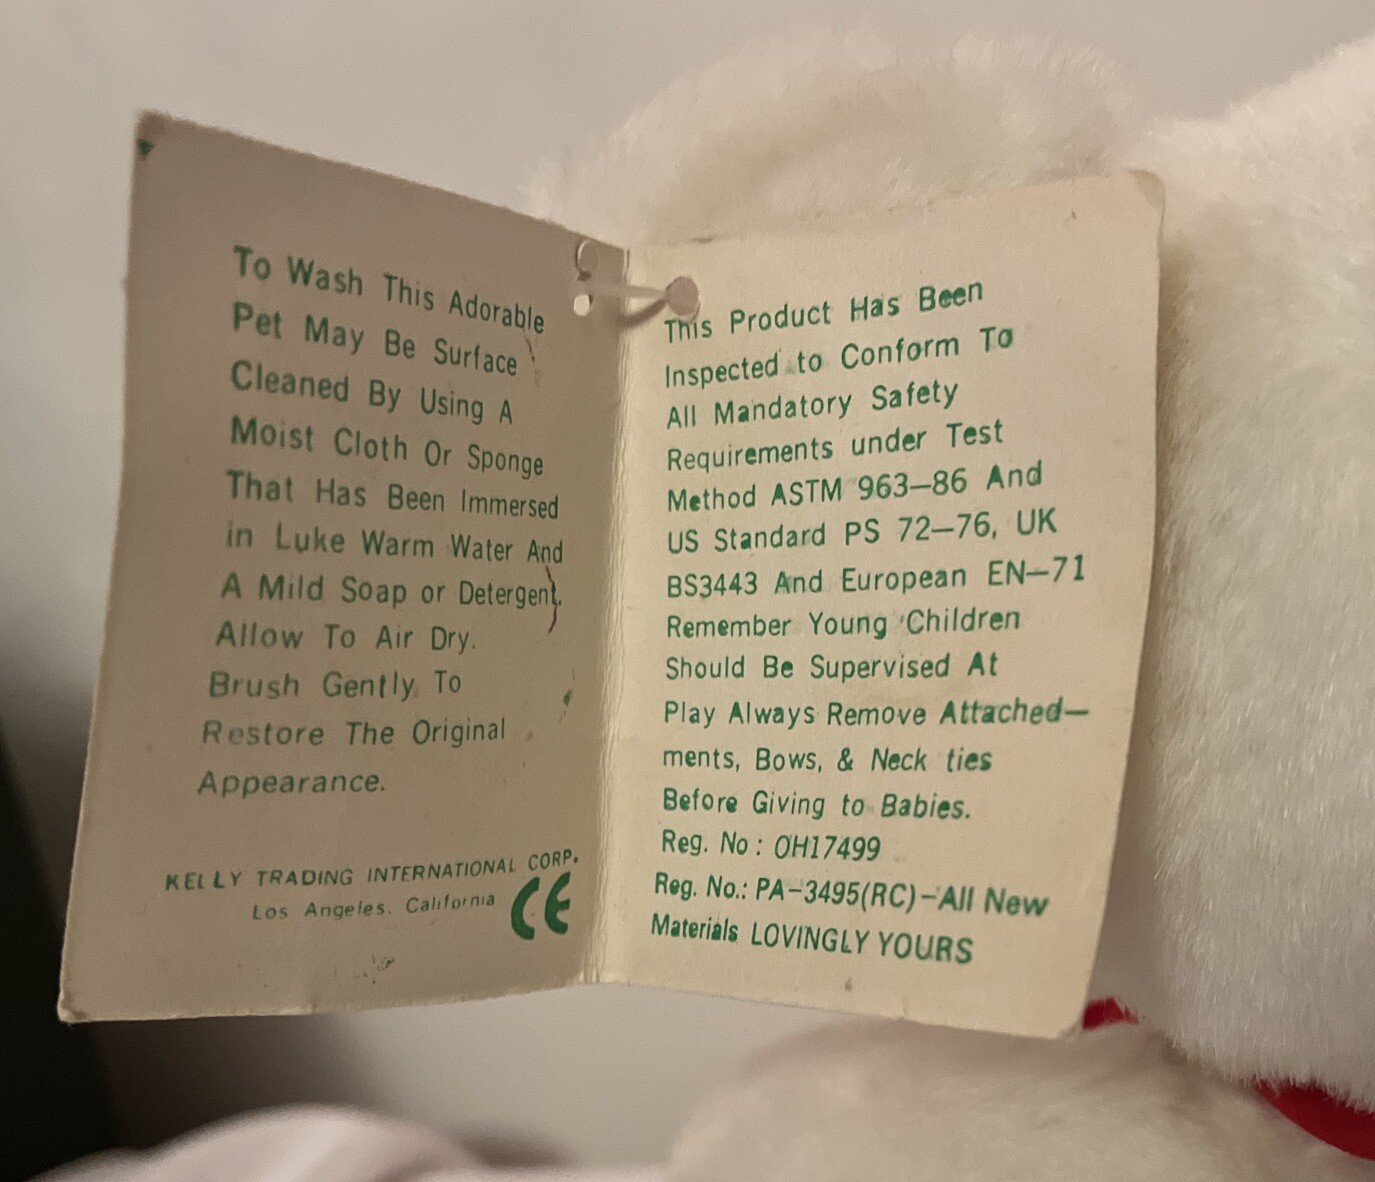 To Wash This Adorable
Pet May Be Surface
Cleaned By Using A
Moist Cloth Or Sponge
That Has Been Immersed
in Luke Warm Water And
A Mild Soap or Detergent.
Allow To Air Dry.
Brush Gently To
Restore The Original
Appearance.
KELLY TRADING INTERNATIONAL CORP.
Los Angeles. California
CE
This Product Has Been
Inspected to Conform To
All Mandatory Safety
Requirements under Test
Method ASTM 963—86 And
US Standard PS 72—76, UK
BS3443 And European EN—71
Remember Young Children
Should Be Supervised At
Play Always Remove Attached—
ments, Bows, & Neck ties
Before Giving to Babies.
Reg. No : OH17499
Reg. No.: PA-3495(RC)-All New
Materials LOVINGLY YOURS